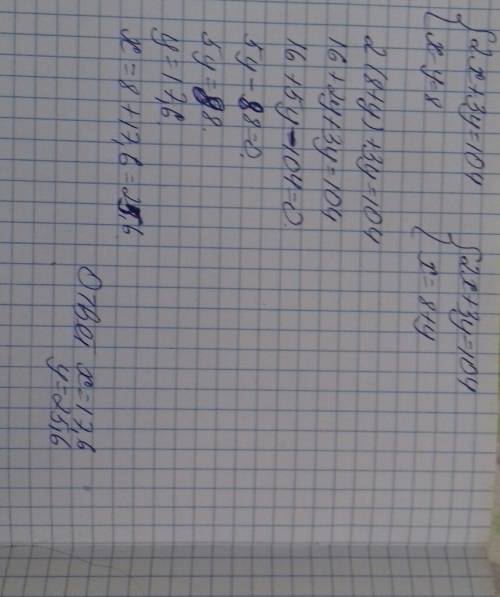 {2x+3y=104 {2x+3y=104
{x-y=8 {x=8+y
2(8+y)+3y=104
16+2y+3y=104
16+5y-104=0.
5y-88=0.
5y=88.
y=17,6.
x=8+17,6=25,6.
Ответ x=17,6
y=25,6